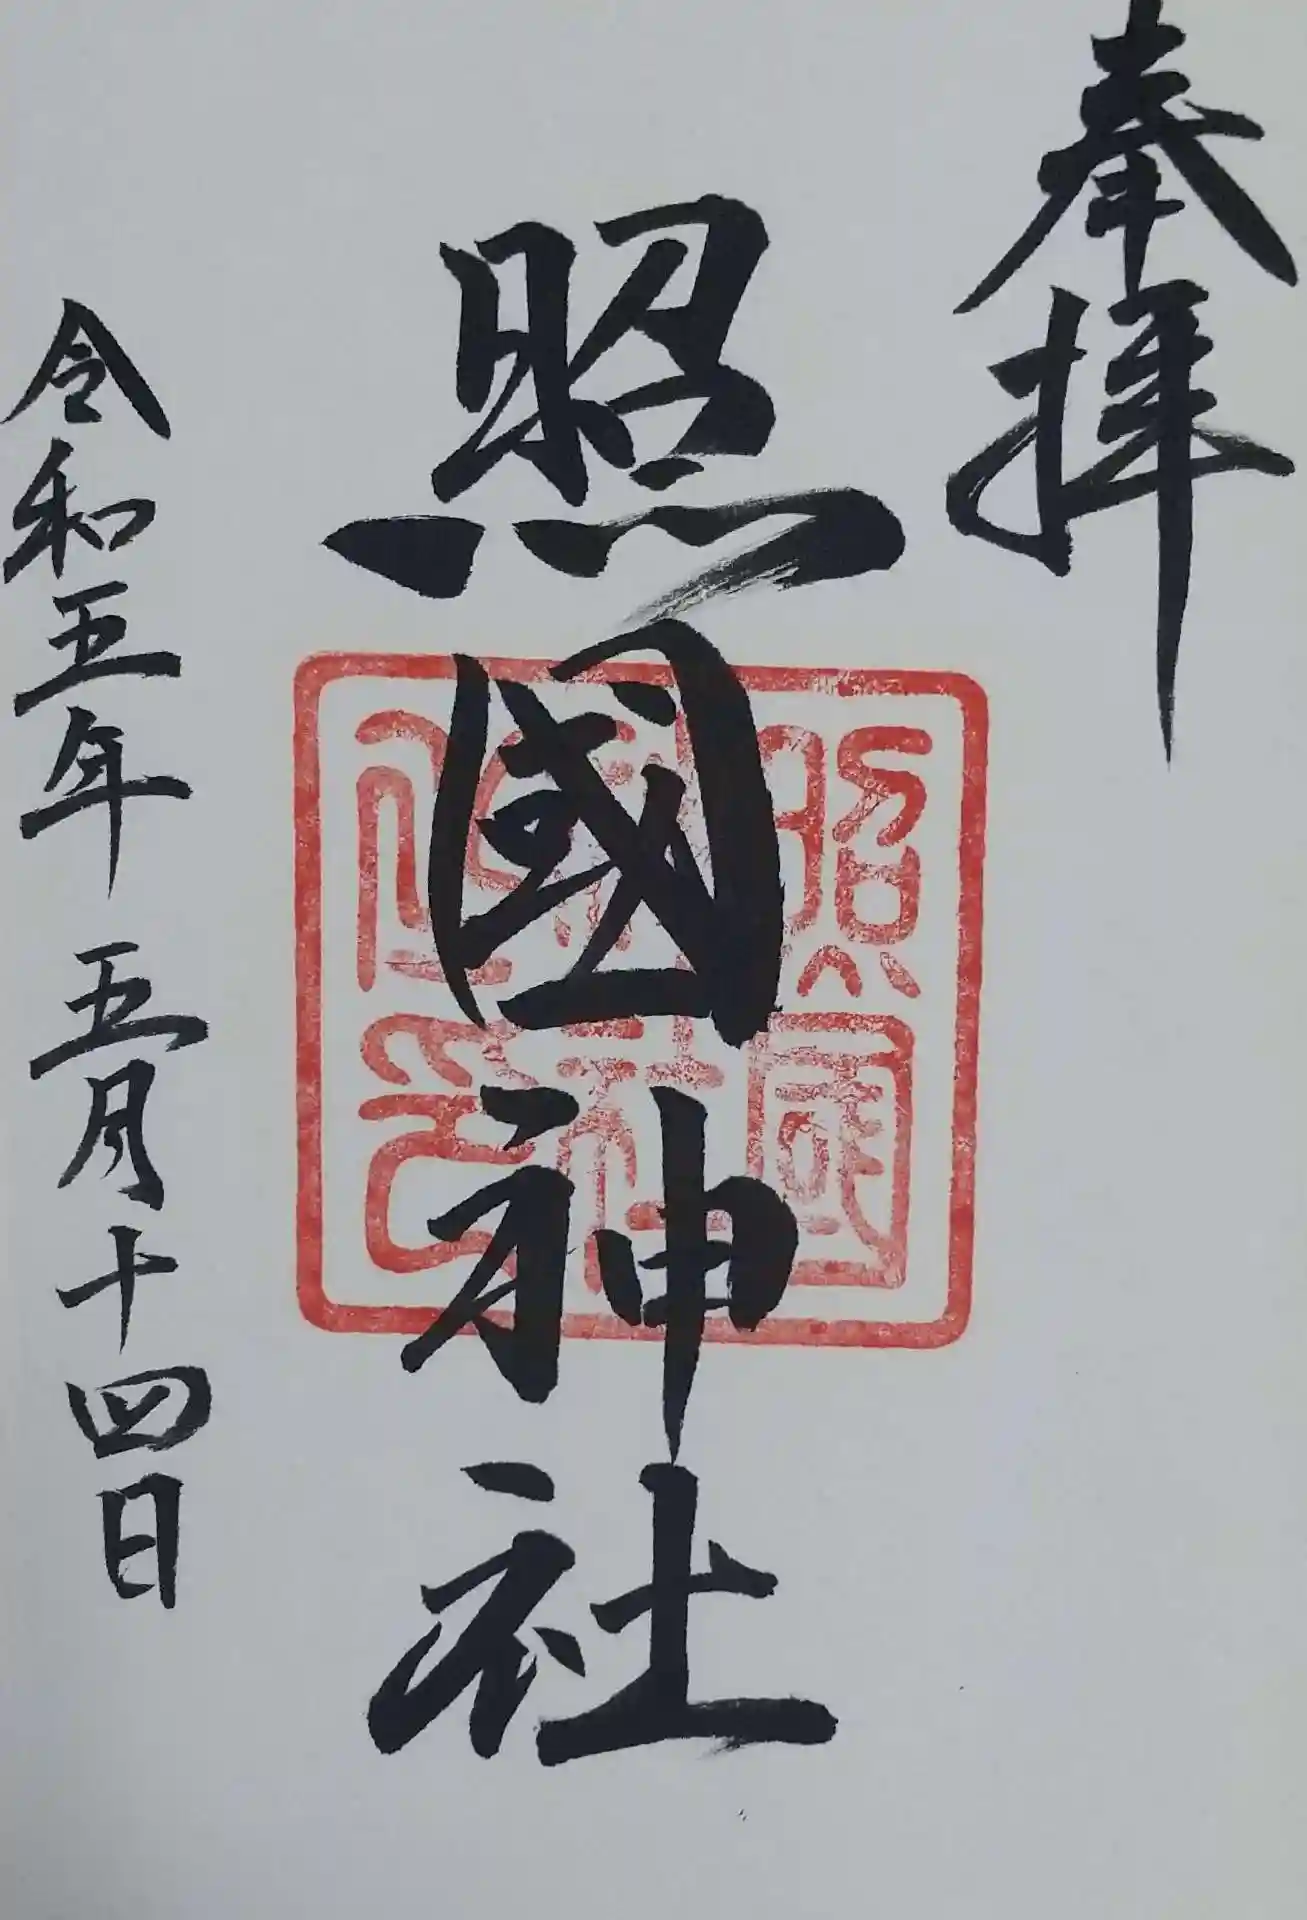 奉拝
照國神社
照國神社之印
令和五年五月十四日